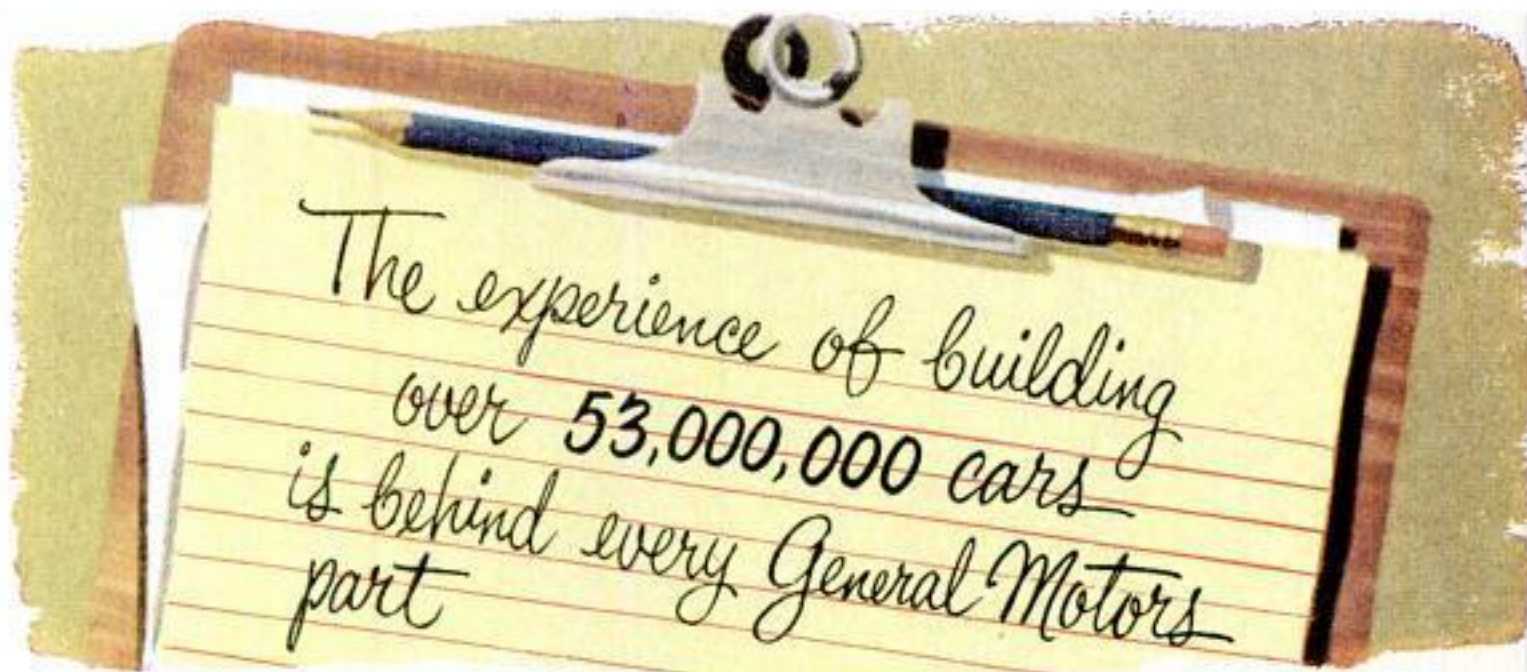 The experience of building
over 53,000,000 cars
is behind every General Motors
part